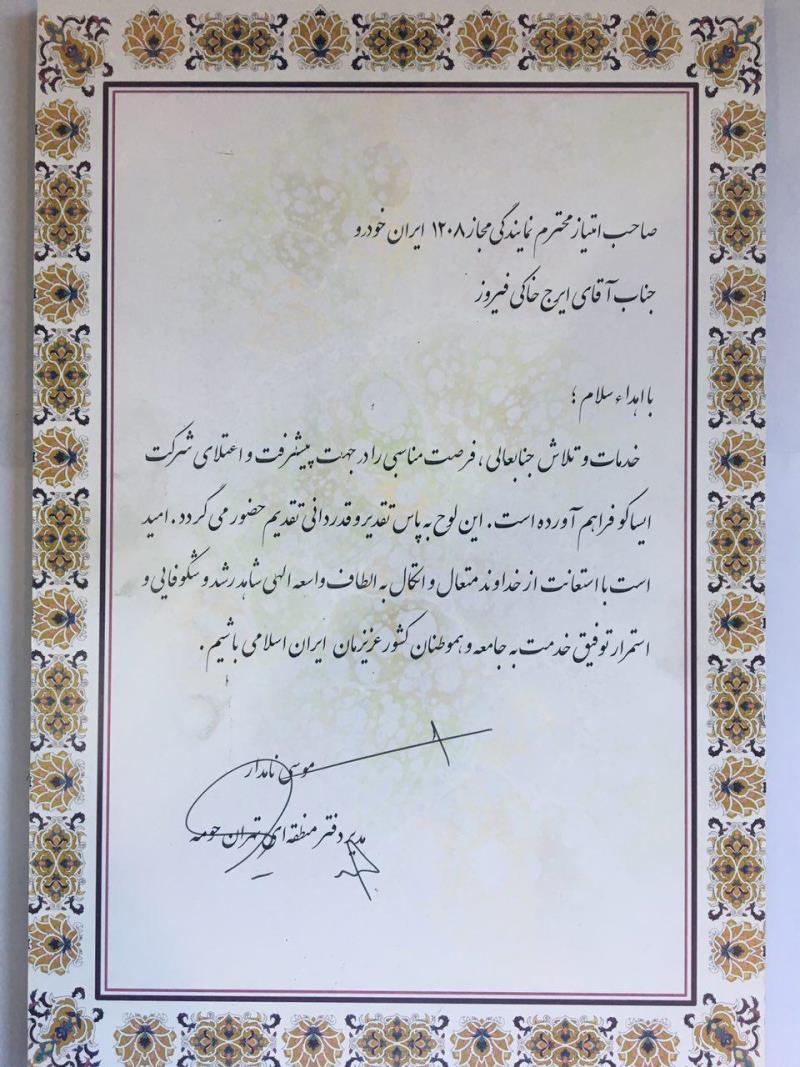 صاحب امتیاز محترم نمایندگی مجاز ۱۲۰۸ ایران خودرو
جناب آقای ایرج خاکی فیروز
با اهداء سلام ؛
خدمات و تلاش جنابعالی ، فرصت مناسبی را در جهت پیشرفت و اعتلای شرکت
ایساکو فراهم آورده است . این لوح به پاس تقدیر و قدردانی تقدیم حضور می گردد . امید
است با استعانت از خداوند متعال و اتکال به الطاف واسعه الهی شاهد رشد و شکوفایی و
استمرار توفیق خدمت به جامعه و هموطنان کشور عزیزمان ایران اسلامی باشیم .
موسی نامدار
مدیر دفتر منطقه ای تهران حومه